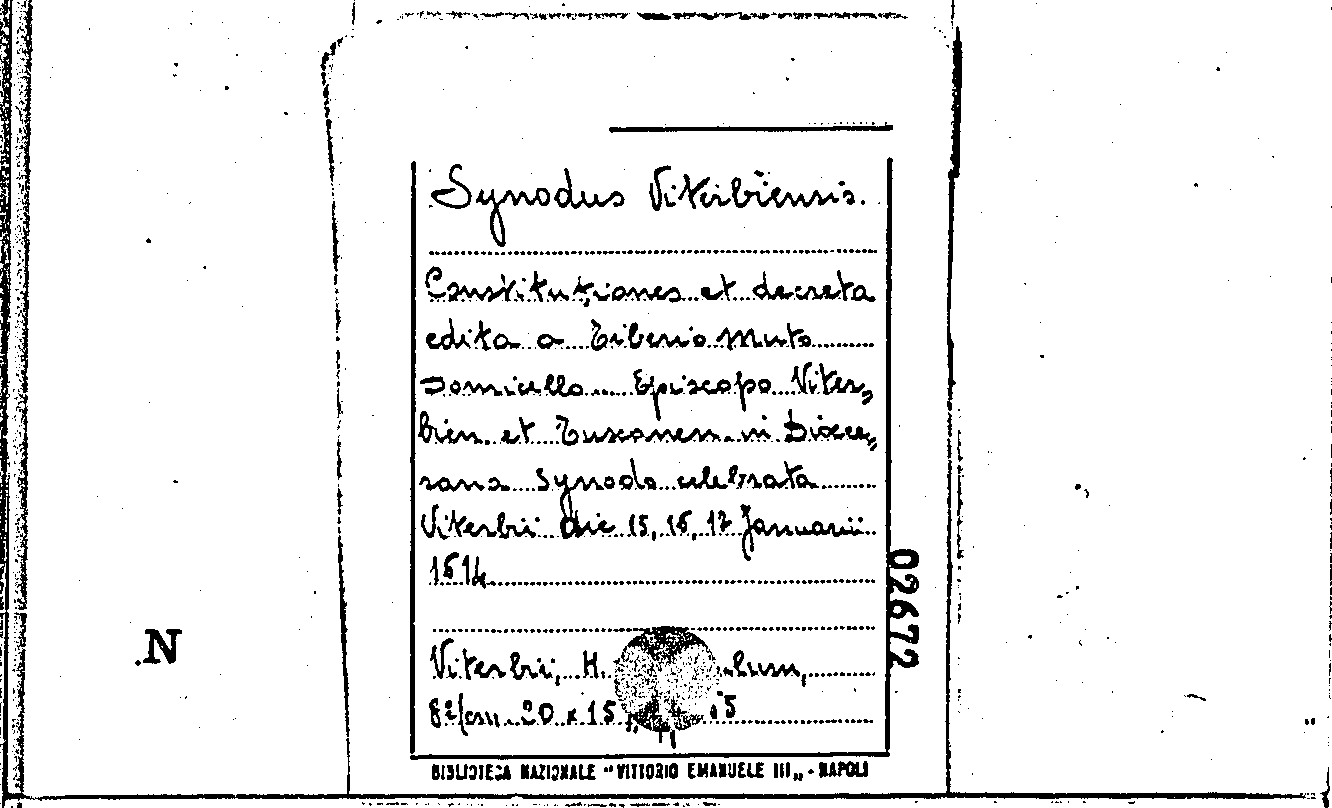 Synodus Viterbiensis.
Constitutiones et decreta
edita a Tiberio Muto
Domicello Episcopo Viter=
bien. et Tuscanen. in Dioce=
sana Synodo celebrata
Viterbii die 15, 16, 17 Januarii
1614
Viterbii, H.
8º/cm. 20 x 15
BIBLIOTECA NAZIONALE "VITTORIO EMANUELE III„ - NAPOLI
02672
N